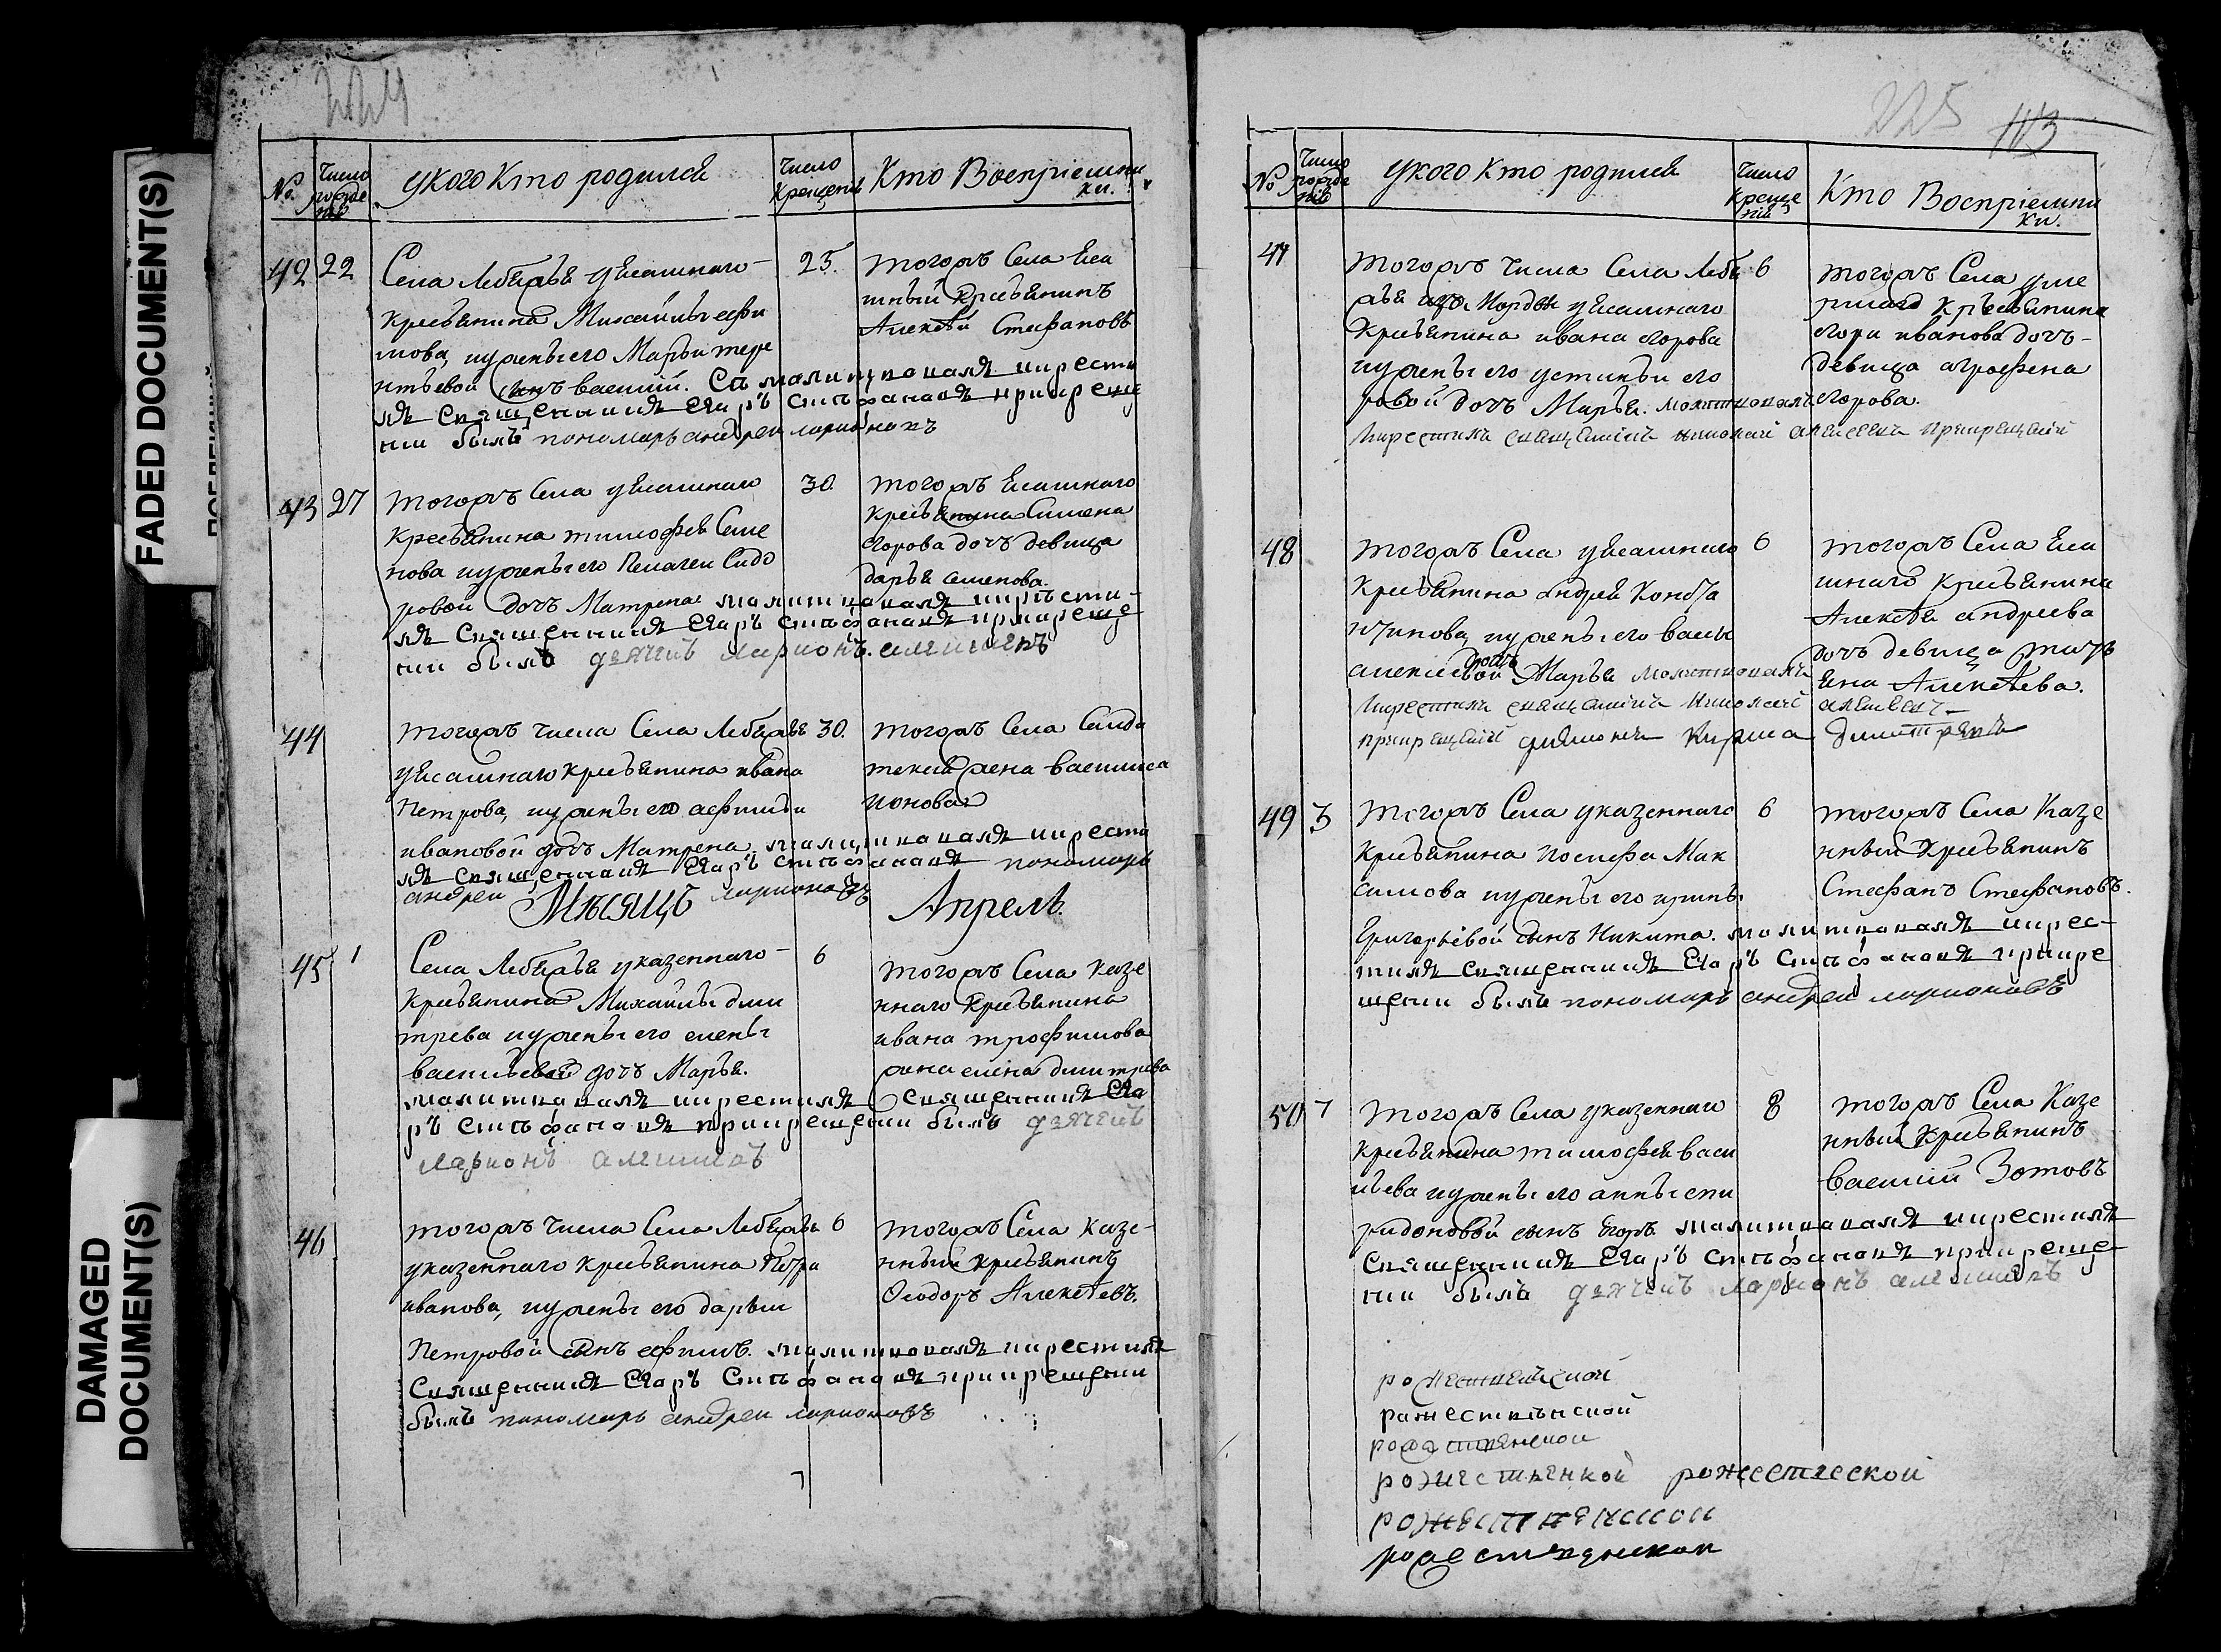 FADED DOCUMENT(S)
DAMAGED
DOCUMENT(S)
224
№.
Число
рожде
нія
У кого кто родился
Число
Крещенія
Кто Воспріемни
ки.
42 22
Села Лебяжья у ясашнаго
крестьянина Михайлы ефи
мова, и жены его Марьи тере
нтьевой сынъ василій.
молитвовалъ и крести
лъ священникъ Егаръ Стефановъ при креще
нии былъ пономарь андреи ларионовъ
25.
тогожъ Села яса
шный крестьянинъ
Алексѣй Стефановъ
43 27
тогожъ Села у ясашнаго
крестьянина тимофея Семе
нова и жены его Пелагеи Сидо
ровой дочь Матрена молитвовалъ и крести
лъ Священникъ Егаръ Стефановъ при креще
нии былъ дьячекъ ларионъ
30.
тогожъ ясашнаго
крестьянина Симена
егорова дочь девица
дарья семенова.
44
тогожъ числа Села Лебяжья
у ясашнаго крестьянина ивана
Петрова, и жены его афимьи
ивановой дочь Матрена. молитвовалъ и крести
лъ священникъ Егаръ Стефановъ пономарь
андреи ларионовъ
30.
тогожъ Села Солда
тская жена василиса
ионова
Мѣсяцъ Апрель.
45 1
Села Лебяжья у казеннаго
крестьянина Михайлы дми
трева и жены его елены
васильевой дочь Марья.
молитвовалъ и крестилъ Священникъ Ега
ръ Стефановъ при крещении былъ дьячекъ
ларионъ
6
тогожъ Села казе
ннаго крестьянина
ивана трофимова
жена елена дмитрева
46
тогожъ числа Села Лебяжья
у казеннаго крестьянина Петра
иванова, и жены его дарьи
Петровой сынъ ефимъ. молитвовалъ и крестилъ
Священникъ Егаръ Стефановъ при крещении
былъ пономарь андреи ларионовъ
6
тогожъ Села казе-
нный крестьянинъ
Ѳеодоръ Алексѣевъ.
225 113
№
Число
рожде
нія
У кого кто родился
Число
Креще
нія
Кто Воспріемни
ки.
47
тогожъ числа Села Лебя
жья изъ Мордвы у ясашнаго
крестьянина ивана егорова
и жены его устиньи его
ровой дочь Марья. молитвовалъ
и крестилъ священникъ николай алексеевъ при крещении
6
тогожъ Села уме
ршаго крестьянина
егора иванова дочь
девица аграфена
егорова.
48
тогожъ Села у ясашнаго
крестьянина андрея
и жены его васы
алексеевой дочь Марья молитвовалъ
и крестилъ священникъ николай алексеевъ
при крещении дьячокъ Кирила дмитревъ
6
тогожъ Села яса
шнаго крестьянина
Алексѣя андреева
дочь девица
Алексѣева.
49 3
тогожъ Села у казеннаго
крестьянина иосифа Мак
симова и жены его ирины
Григорьевой сынъ Никита. молитвовалъ и крес-
тилъ священникъ Егаръ Стефановъ при кре
щении былъ пономарь андреи ларионовъ
6
тогожъ Села казе
нный крестьянинъ
Стефанъ Стефановъ.
50 7
тогожъ Села у казеннаго
крестьянина тимофея васи
льева и жены его анны спи
ридоновой сынъ Егоръ. молитвовалъ и крестилъ
Священникъ Егаръ Стефановъ при креще
нии былъ дьячекъ ларионъ
8
тогожъ Села казе
нный крестьянинъ
василий Зотовъ